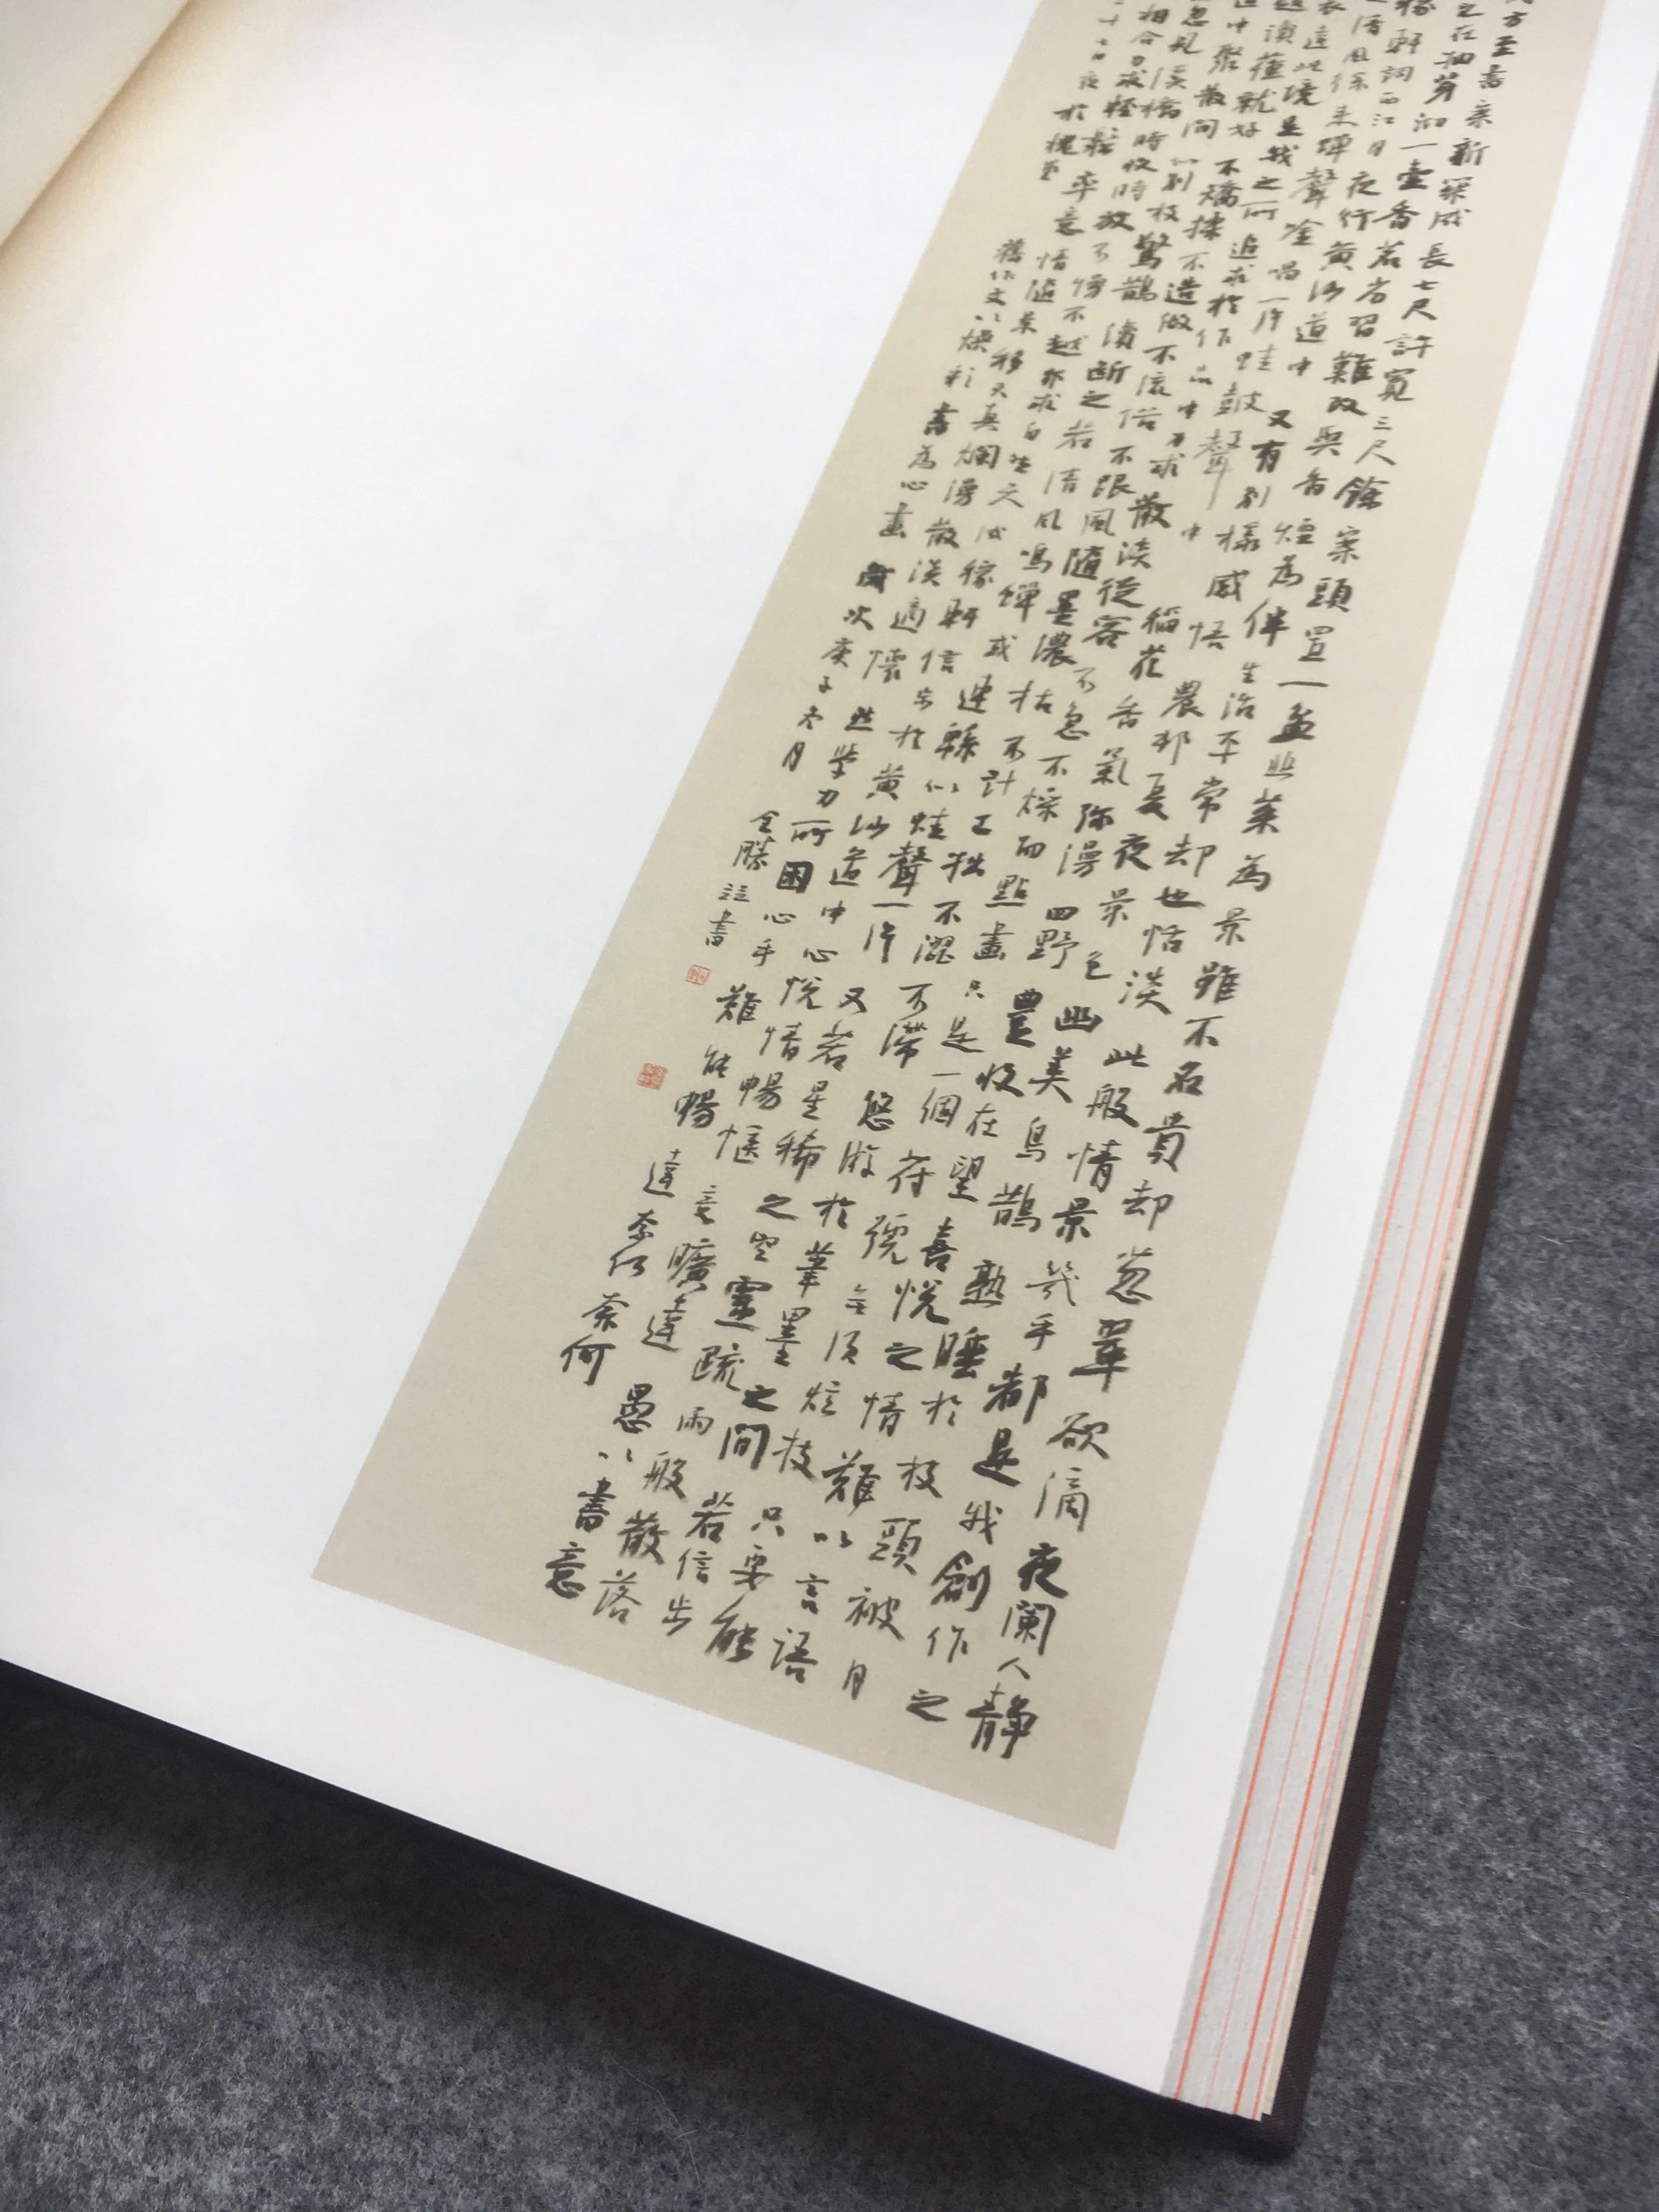 方至書案新羅成長七尺許寬三尺餘案頭置一盆些葉為景雖不名貴却蔥翠欲滴夜闌人靜
之在抽芽沏一壺香茗習難改與香煙為伴生活平常却也恬淡此般情景幾乎都是我創作之
稼軒詞西江月夜行黃沙道中又有別樣感悟農邨夏夜景色幽美鳥鵲熟睡於枝頭被月
清風徐來蟬聲唱一片蛙鼓聲中稻花香氣彌漫四野豐收在望喜悅之情難以言語
遠此境是我之所追求於作品中力求散淡從容不急不燥而點畫只是一個符號無須炫技只要能
讀蘊就好不矯揉不造做不流俗不跟風隨墨濃枯不計工拙不澀不滯悠游於筆墨之間若信步
中聚散間似別枝驚鵲續斷之若清風鳴蟬或連緜似蛙聲一片又若星稀之空靈疏雨般散落
忽見溪橋時收時放不慢不越亦求自生天成稼軒信步於黃沙道中心悅情暢愜意曠達愚以書意
相合力求輕鬆率意情隨景移天真爛漫散淡適懷然學力所困心手難能暢達奈何奈何
十七日夜於槐堂舊作文以煉於書為心畫歲次庚子冬月全勝註書